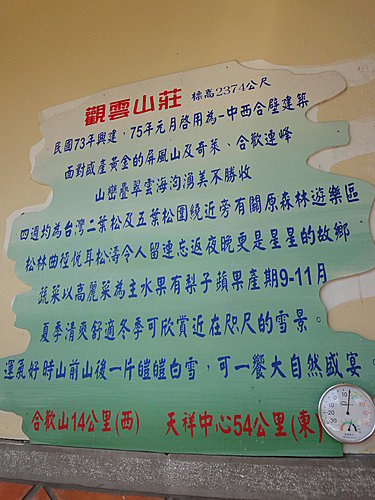 觀雲山莊 標高2374公尺
民國73年興建，75年元月啓用為-中西合壁建築
面對盛產黃金的屏風山及奇萊、合歡連峰
山巒疊翠雲海洶湧美不勝收
四週均為台灣二葉松及五葉松圍繞近旁有關原森林遊樂區
松林曲徑悅耳松濤令人留連忘返夜晚更是星星的故鄉
蔬菜以高麗菜為主水果有梨子蘋果產期9-11月
夏季清爽舒適冬季可欣賞近在咫尺的雪景。
運氣好時山前山後一片皚皚白雪，可一饗大自然盛宴。
合歡山14公里(西) 天祥中心54公里(東)